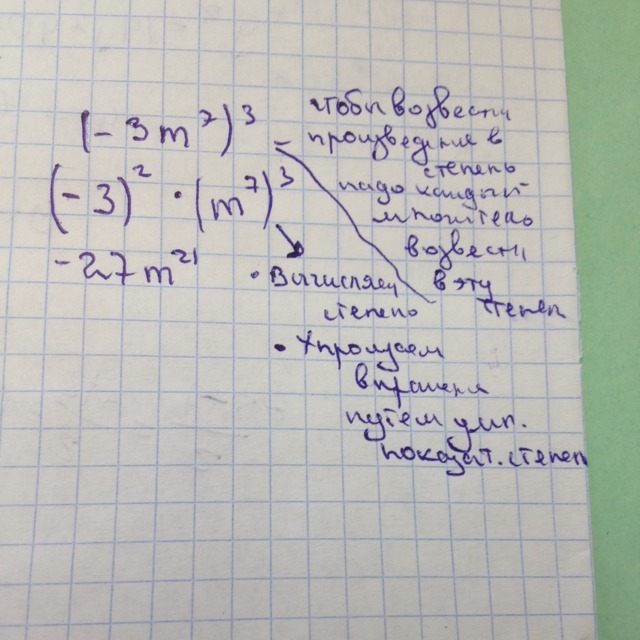 (-3m⁷)³ =
(-3)² · (m⁷)³
-27m²¹
чтобы возвести
произведения в
степень
надо каждый
множитель
возвести
в эту
степен
• Вычисляем
степень
• Упрощаем
выражения
путём умн.
показат. степен